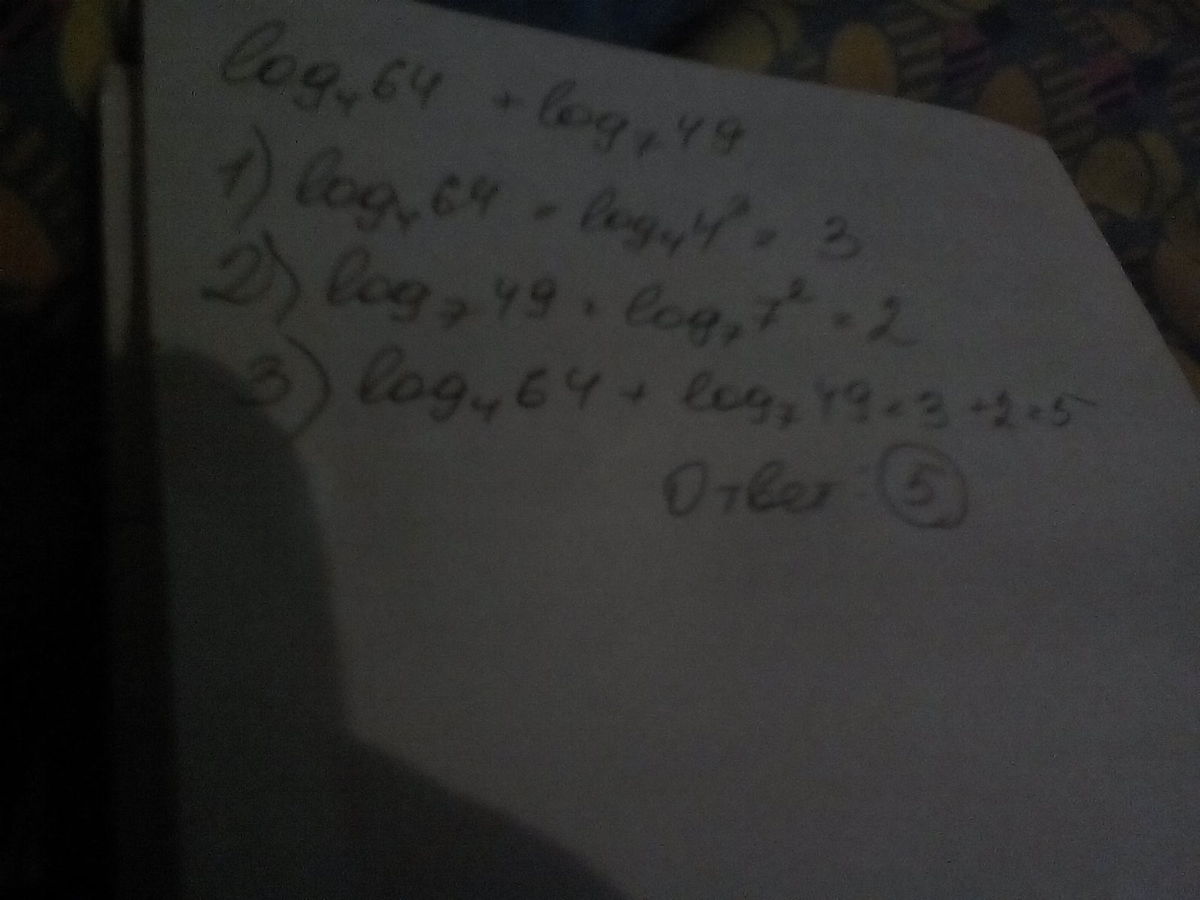 log₄64 + log₇49
1) log₄64 = log₄4³ = 3
2) log₇49 = log₇7² = 2
3) log₄64 + log₇49 = 3 + 2 = 5
Ответ: 5